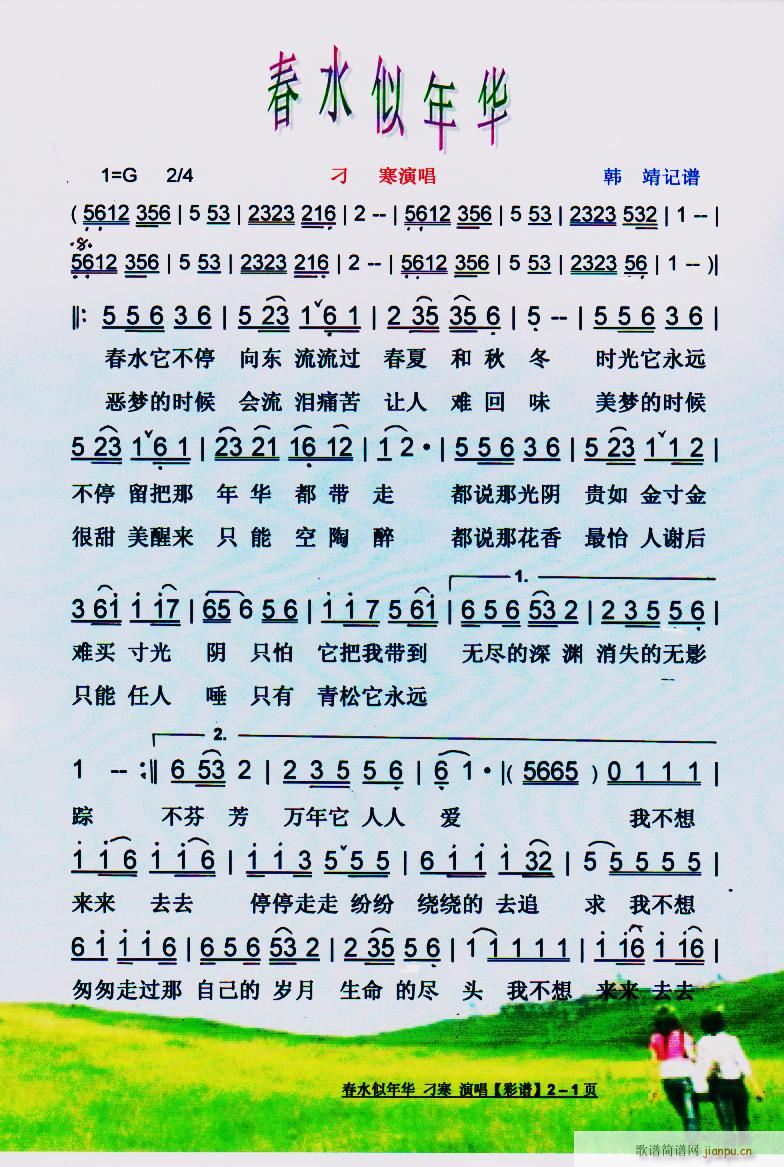 春水似年华
1=G 2/4 刁 寒演唱 韩 靖记谱
( 5612 356 | 5 53 | 2323 216 | 2 -- | 5612 356 | 5 53 | 2323 532 | 1 -- |
5612 356 | 5 53 | 2323 216 | 2 -- | 5612 356 | 5 53 | 2323 56 | 1 -- )|
‖: 5 5 6 3 6 | 5 23 1 6 1 | 2 35 35 6 | 5 -- | 5 5 6 3 6 |
春水它不停 向东 流流过 春夏 和 秋 冬 时光它永远
恶梦的时候 会流 泪痛苦 让人 难 回 味 美梦的时候
5 23 1 6 1 | 23 21 16 12 | 1 2 · | 5 5 6 3 6 | 5 23 1 1 2 |
不停 留把那 年 华 都 带 走 都说那光阴 贵如 金寸金
很甜 美醒来 只 能 空 陶 醉 都说那花香 最怡 人谢后
1.
3 61 1 17 | 65 6 5 6 | 1 1 7 5 61 | 6 5 6 53 2 | 2 3 5 5 6 |
难买 寸光 阴 只怕 它把我带到 无尽的深 渊 消失的无影
只能 任人 唾 只有 青松它永远
2.
1 -- :‖ 6 53 2 | 2 3 5 5 6 | 6 1 · |( 5665 ) 0 1 1 1 |
踪 不芬 芳 万年它 人人 爱 我不想
1 1 6 1 1 6 | 1 1 3 5 5 5 | 6 1 1 1 32 | 5 5 5 5 5 |
来来 去去 停停走走 纷纷 绕绕的 去追 求 我不想
6 1 1 1 6 | 6 5 6 53 2 | 2 35 5 6 | 1 1 1 1 1 | 1 16 1 16 |
匆匆走过那 自己的 岁月 生命 的尽 头 我不想 来来 去去
春水似年华 刁寒 演唱【彩谱】2－1页
歌谱简谱网 jianpu.cn